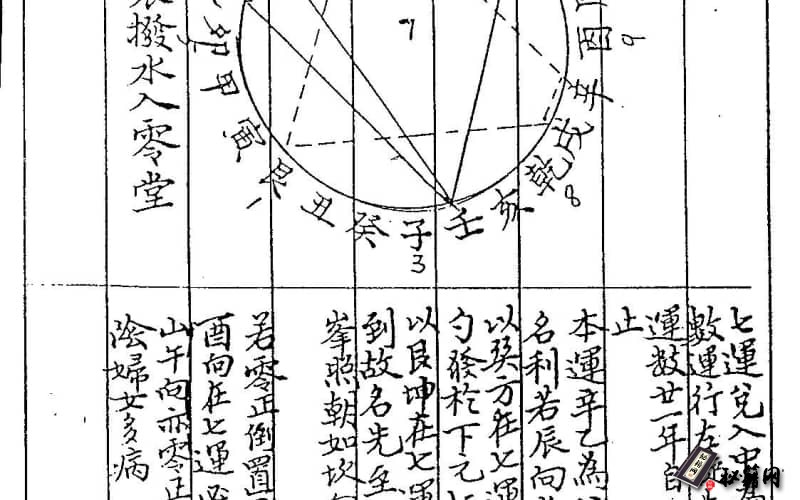 撥水入零堂
卯甲寅艮丑癸子壬亥乾戌辛酉
7
9
8
3
1
七運兌入中
數運行左
運数廿一年
止
本運辛乙為
名利若辰向
以癸方在七運
勺發於下元
以艮坤在七運
到故名先至
峯照朝如坎
若零正倒置
酉向在七運
山午向亦零正
淫婦女多病
秘籍网